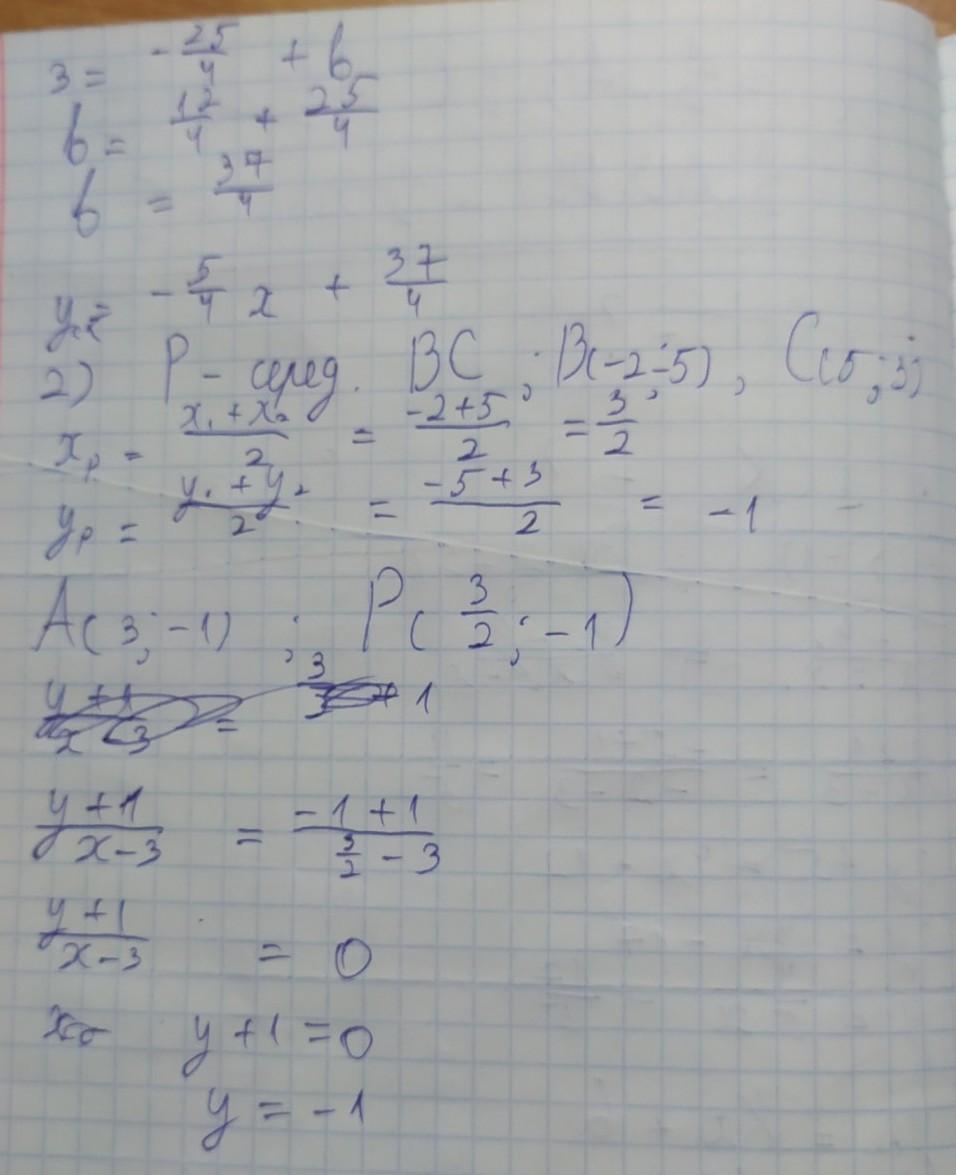 3 = -25/4 + b
b = 12/4 + 25/4
b = 37/4
y = -5/4 x + 37/4
2) P - серед. BC ; B(-2;-5), C(5;3)
x_p = (x₁ + x₂)/2 = (-2+5)/2 = 3/2
y_p = (y₁ + y₂)/2 = (-5+3)/2 = -1
A(3;-1) ; P(3/2;-1)
(y+1)/(x-3) = (-1+1)/(3/2 - 3)
(y+1)/(x-3) = 0
y+1=0
y = -1